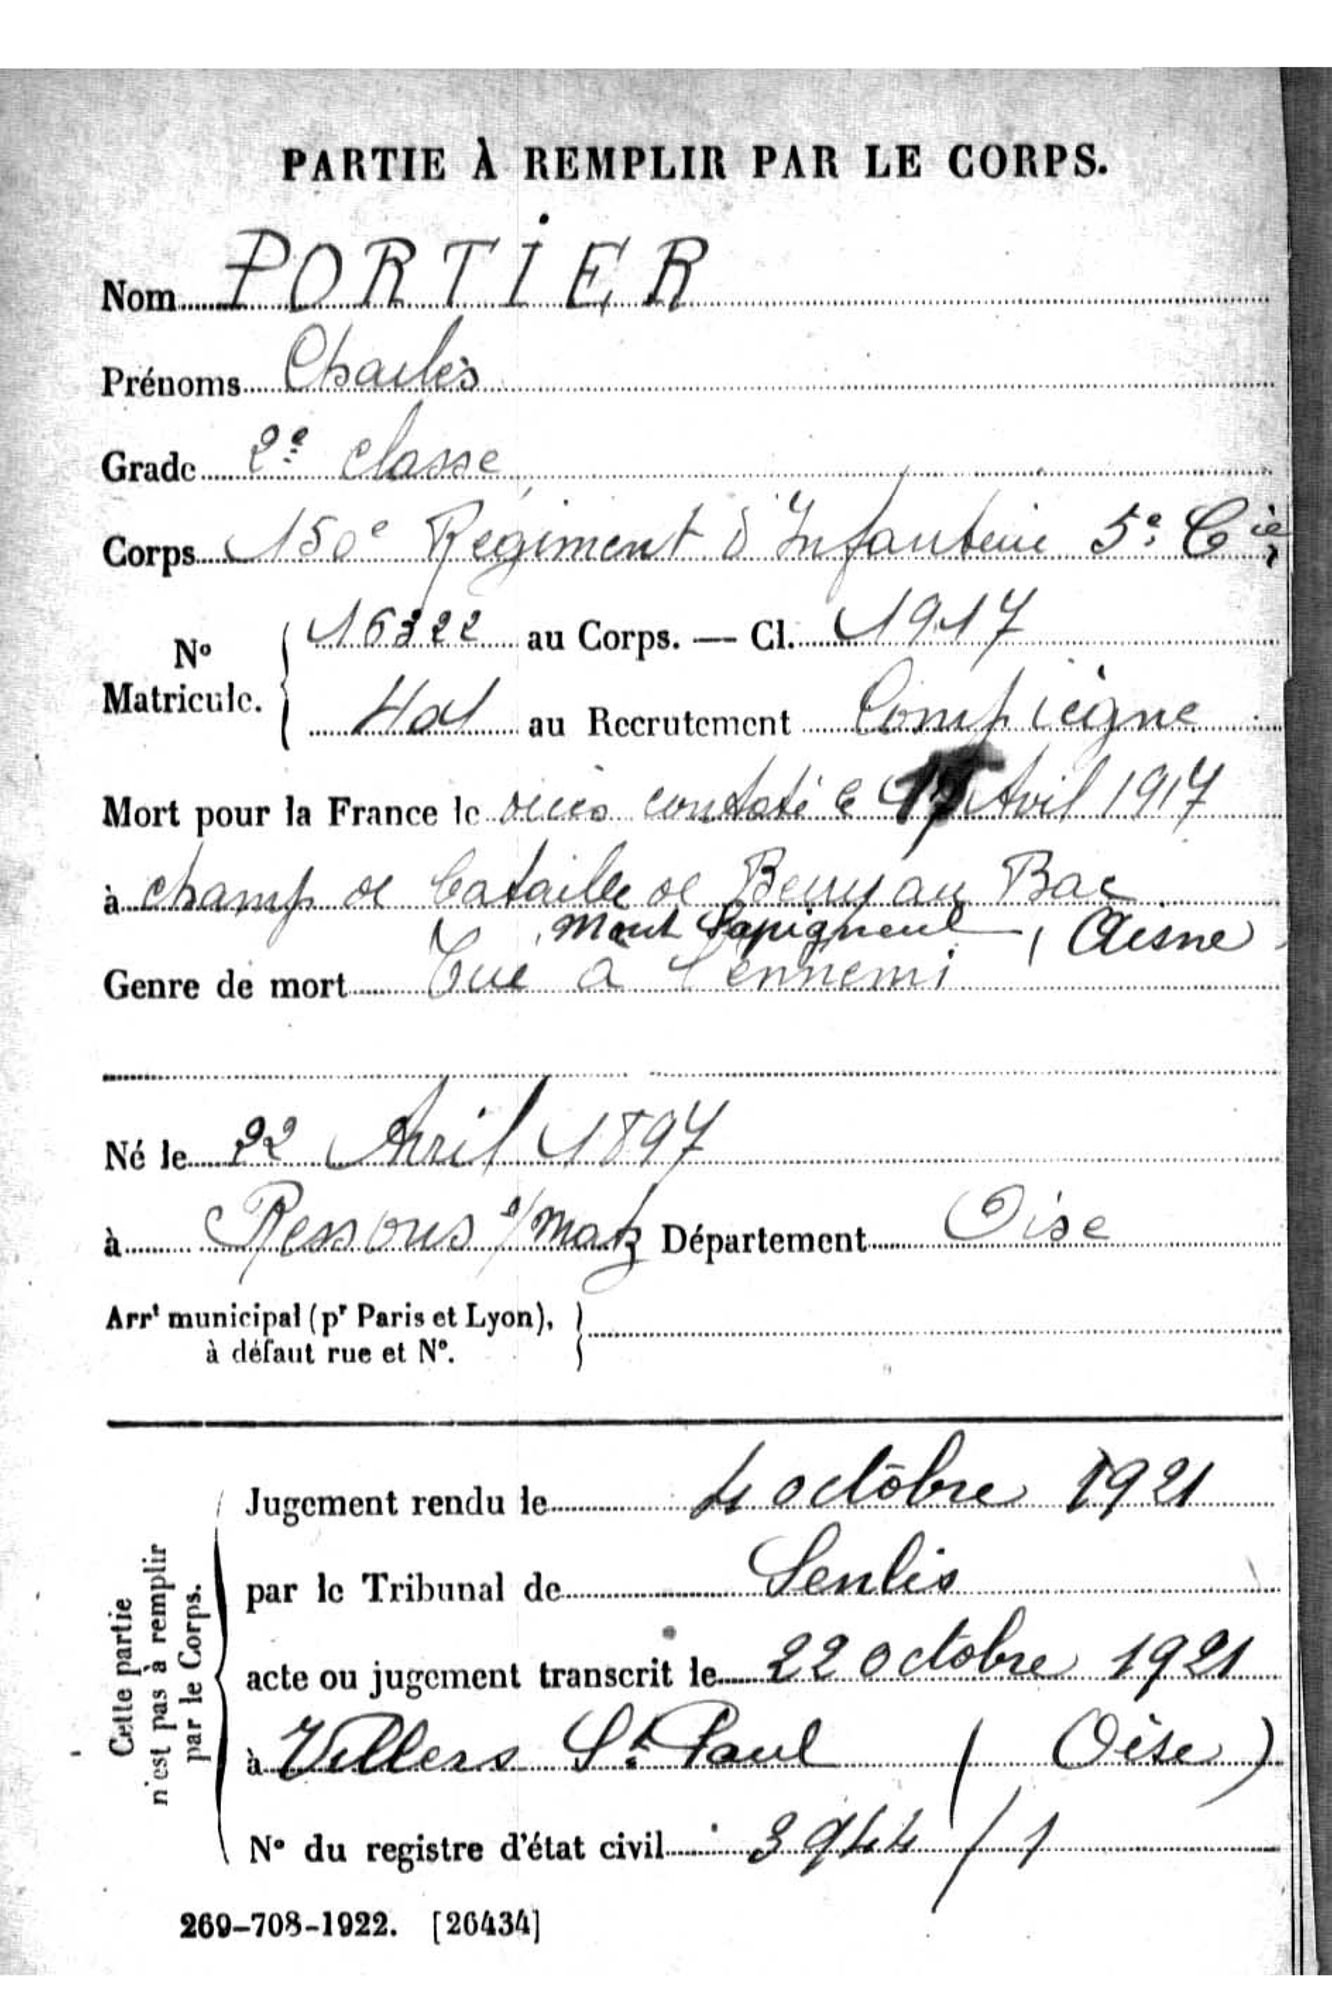 PARTIE À REMPLIR PAR LE CORPS.
Nom PORTIER
Prénoms Charles
Grade 2e classe
Corps 150e Régiment d'Infanterie 5e Cie
No Matricule. 16322 au Corps. — Cl. 1917
401 au Recrutement Compiègne
Mort pour la France le décès constaté le Avril 1917
à champ de bataille de Berry au Bac
Mont Sapigneul (Aisne
Genre de mort Tué à l'ennemi
Né le 22 Avril 1897
à Ressons s/matz Département Oise
Arrt municipal (pr Paris et Lyon),
à défaut rue et N°.
Cette partie
n'est pas à remplir
par le Corps.
Jugement rendu le 4 octobre 1921
par le Tribunal de Senlis
acte ou jugement transcrit le 22 octobre 1921
à Villers St Paul (Oise)
N° du registre d'état civil 3944/1
269-708-1922. [26434]